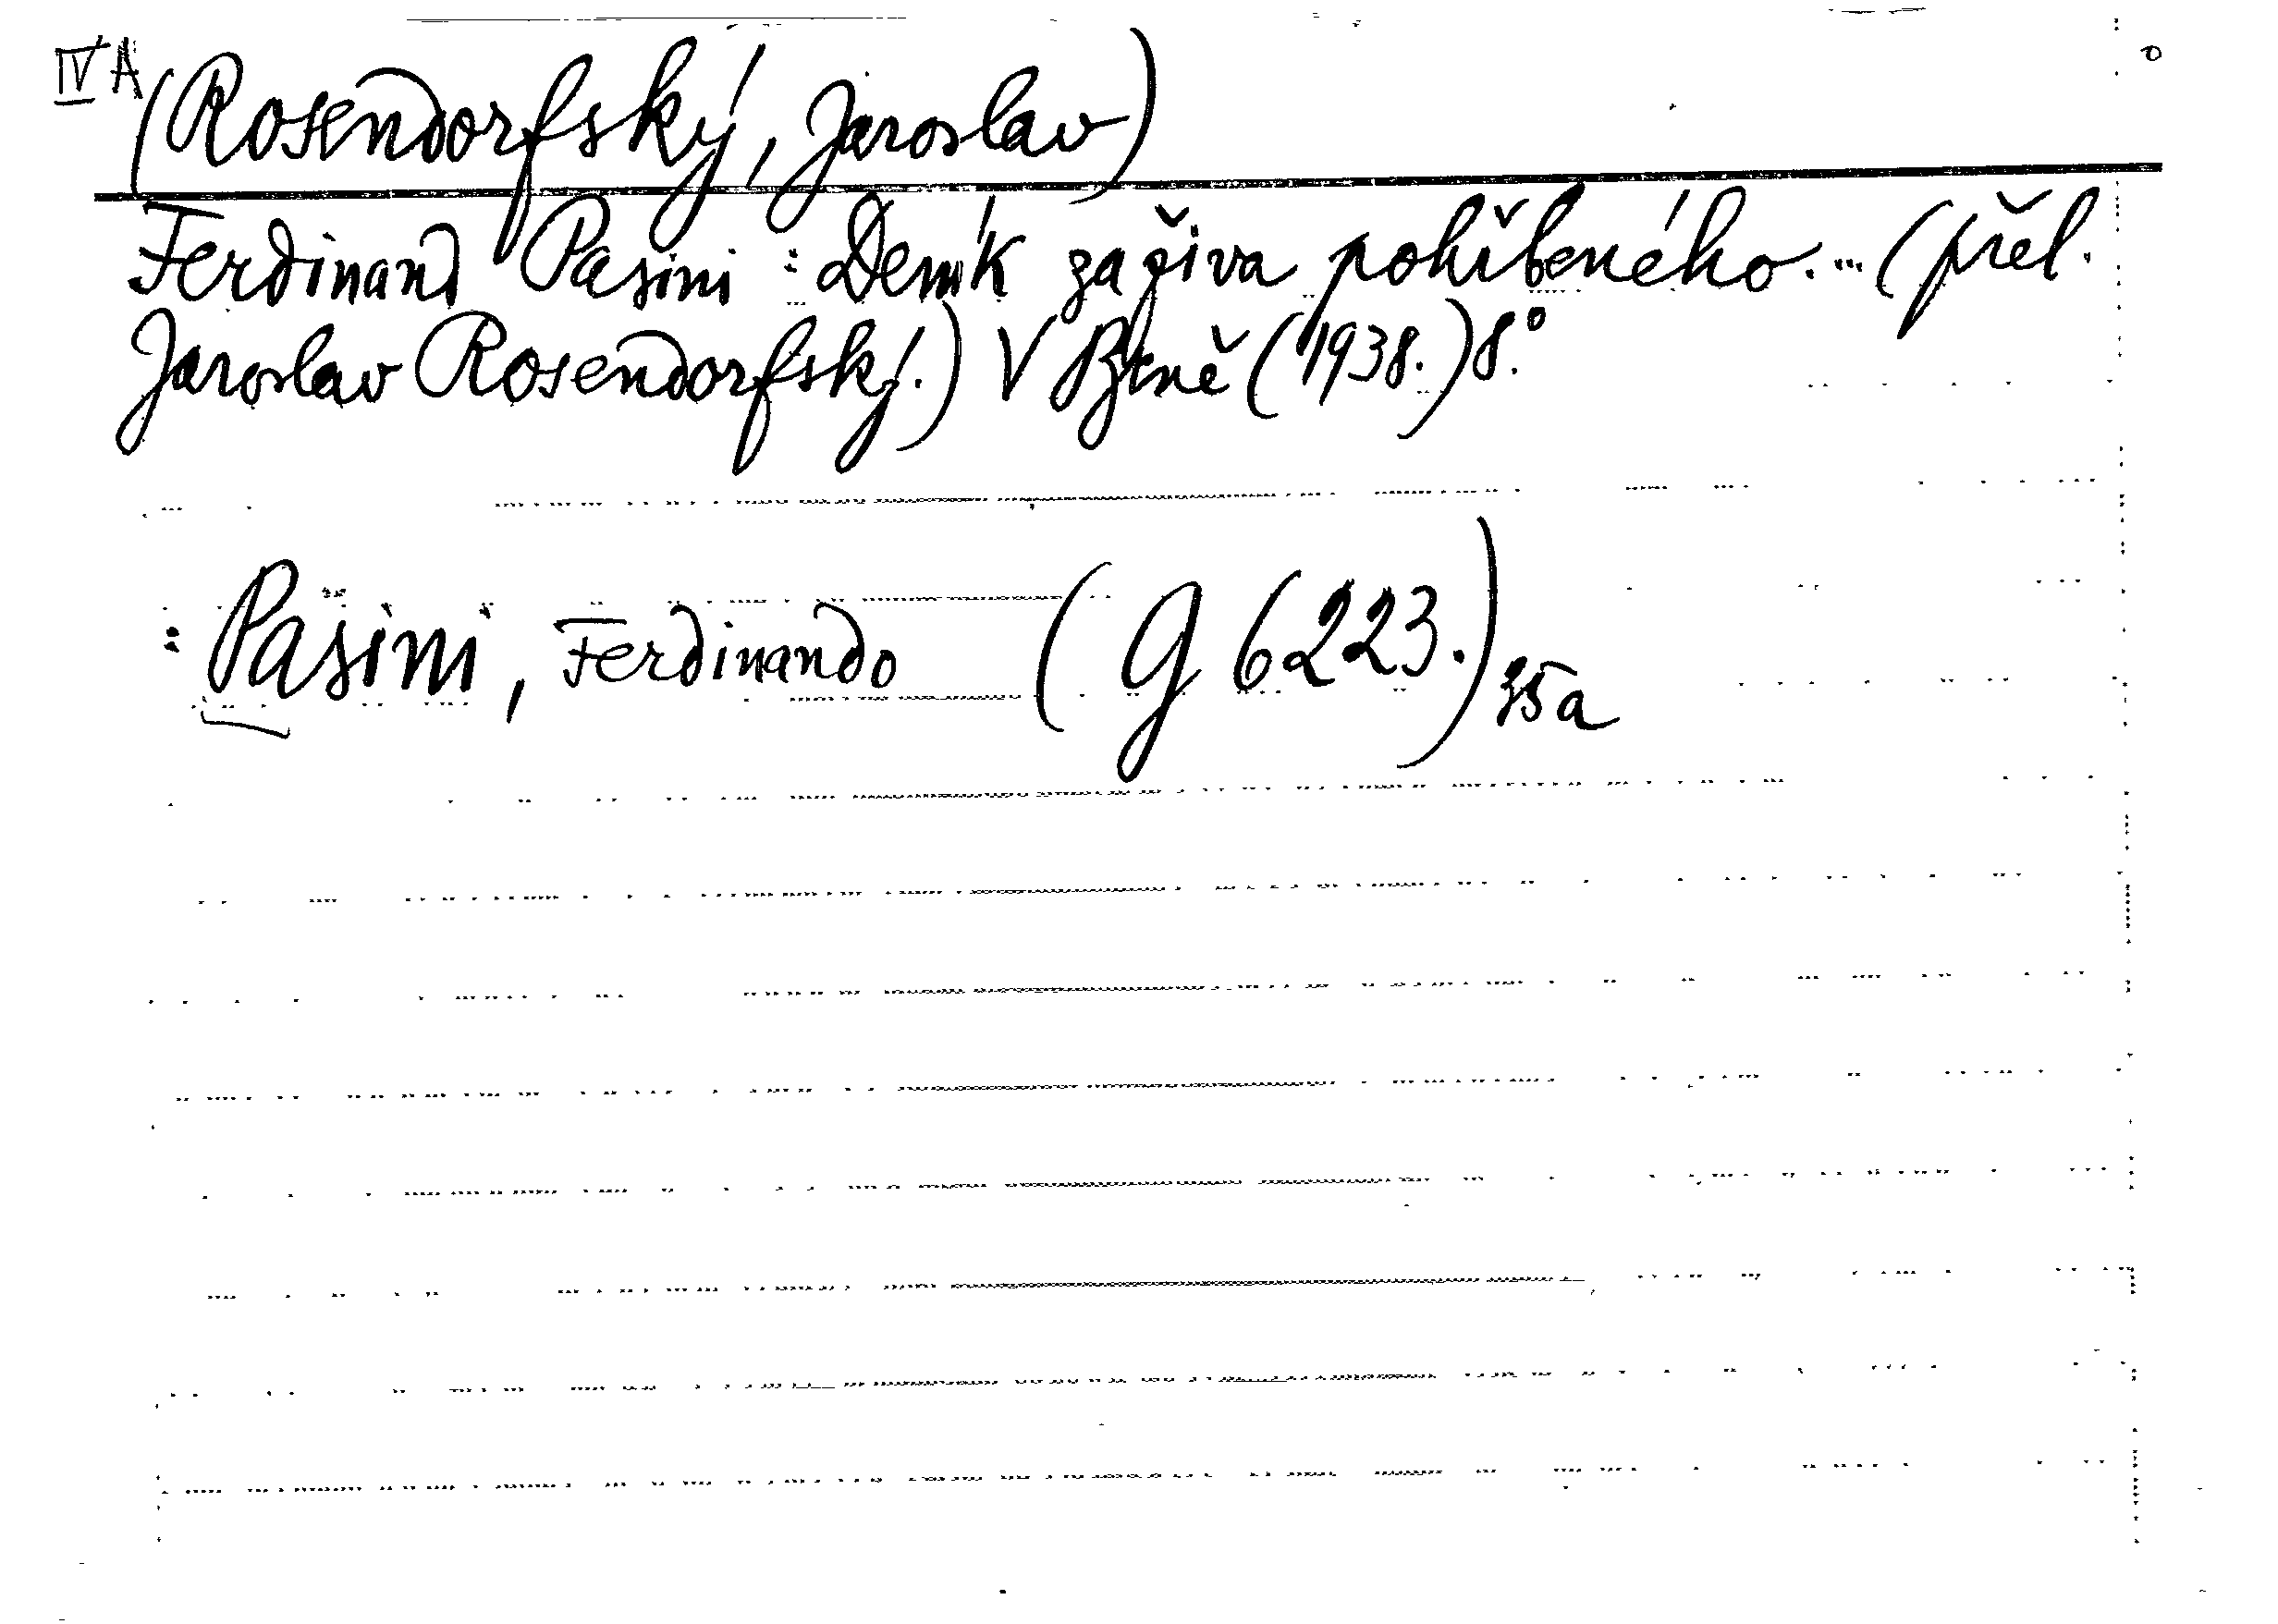 IV A
(Rosendorfský, Jaroslav)
Ferdinand Pasini: Deník zaživa pohřbeného. ... (přel.
Jaroslav Rosendorfský.) V Brně (1938.) 8.°
: Pasini, Ferdinando (G 6223.) 35a